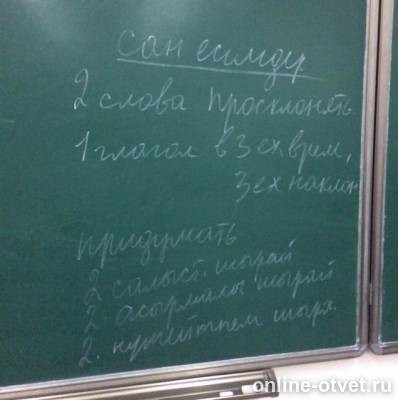 сан есімдер
2 слова просклонять
1 глагол в 3 ех врем,
3 ех наклон.
придумать
2 салыст. шырай
2. асырмалы шырай
2. күшейтпелі шырa.
online-otvet.ru